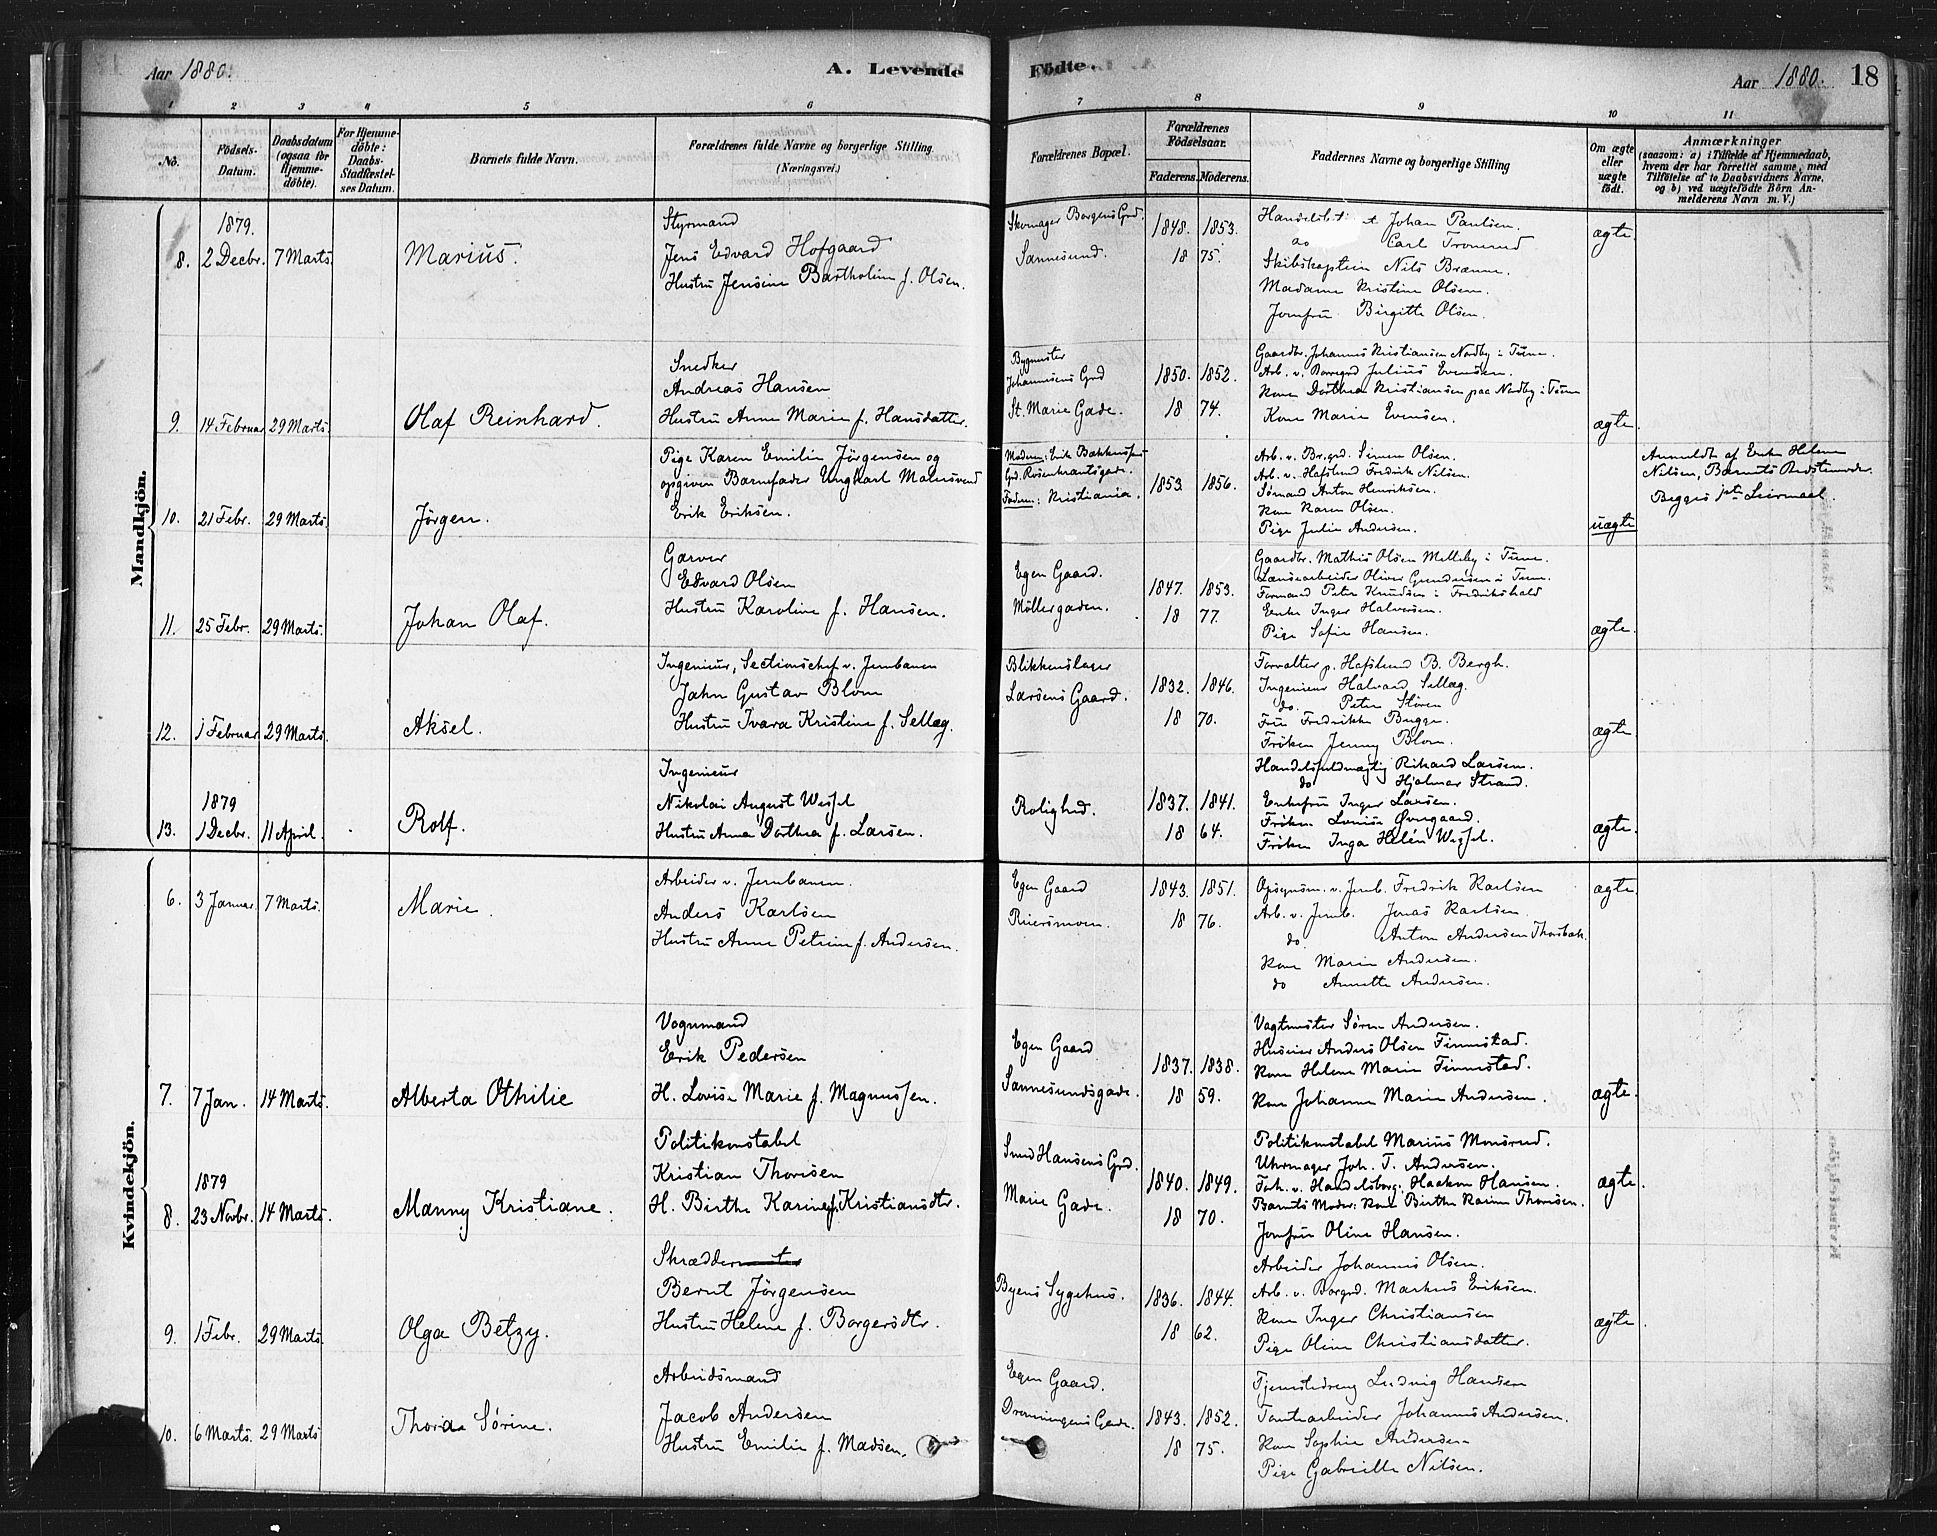 Aar 1880.
A. Levende Fødte.
Aar 1880. 18
1 2 3 4 5 6 7 8 9 10 11
No.
Fødsels-Datum.
Daabsdatum (ogsaa for Hjemme-døbte).
For Hjemme-døbte: Daabs-Stadfæstel-ses Datum.
Barnets fulde Navn.
Forældrenes fulde Navne og borgerlige Stilling. (Næringsvei.)
Forældrenes Bopæl.
Forældrenes Fødselsaar.
Faderens. Moderens.
Faddernes Navne og borgerlige Stilling
Om ægte eller uægte født.
Anmærkninger
(saasom: a) i Tilfælde af Hjemmedaab,
hvem der har forrettet samme, med
Tilføielse af to Daabsvidners Navne,
og b) ved uægtefødte Børn An-
melderens Navn m. V.)
Mandkjön.
8. 1879. 2 Decbr. 7 Marts. Marius.
Styrmand
Jens Edvard Hofgaard
Hustru Jensine Bartholine f. Olsen.
Skomager Borgens Grd.
Sannesund.
1848. 1853.
18 75.
Johan Paulsen.
do Carl Tronrud
Skibskaptein Nils Brænne.
Madame Kristine Olsen.
Jomfru Birgitte Olsen.
ægte.
9. 14 Februar 29 Marts. Olaf Reinhard.
Snedker
Andreas Hansen
Hustru Anne Marie f. Hansdatter.
Bygmester
Johannesens Grd
St. Marie Gade.
1850. 1852.
18 74.
Gaardbr. Johannes Kristiansen Nordby i Tune.
Arb. v. Borregrd Julius Evensen.
Kone Dorthea Kristiansen paa Nordby i Tune
Kone Marie Evensen.
ægte.
10. 21 Febr. 29 Marts. Jörgen.
Pige Karen Emilie Jörgensen og
opgiven Barnefader Ungkarl
Erik Eriksen.
Moderen:
Grd. Rosenkrantsgade.
Faderen: Kristiania.
1853. 1856.
Arb. v. Br.grd. Simen Olsen.
Arb. v. Hafslund Fredrik Nilsen.
Sømand Anton Henriksen.
Kone Karen Olsen.
Pige Julie Andersen.
uægte
Anmeldt af Enke Helene
Nilsen, Barnets Bedstemoder.
Begges 1ste Leiermaal.
11. 25 Febr. 29 Marts. Johan Olaf.
Garver
Edvard Olsen
Hustru Karoline f. Hansen.
Egen Gaard.
Möllergaden.
1847. 1853.
18 77.
Gaardbr. Mathis Olsen Melleby i Tune.
Lænsearbeider Oliver Gundersen i Tune.
Formand Peter Knudsen i Fredrikshald
Enke Inger Halvorsen.
Pige Sofie Hansen.
ægte.
12. 1 Februar 29 Marts. Aksel.
Ingenieur, Sectionschef v. Jernbanen
Jahn Gustav Blom
Hustru Ivara Kristine f. Selleg.
Blikkenslager
Larsens Gaard.
1832. 1846.
18 70.
Forvalter p. Hafslund B. Bergh.
Ingenieur Halvard Selleg.
do. Peter Stören
Fru Fredrikke Bugge.
Fröken Jenny Blom.
ægte.
13. 1879 1 Decbr. 11 April. Rolf.
Ingenieur
Nikolai August Wessel
Hustru Anna Dorthea f. Larsen.
Rolighed.
1837. 1841.
18 64.
Handelsfuldmægtig Rikard Larsen.
do Hjalmar Strand.
Enkefru Inger Larsen.
Fröken Louise Øvergaard.
Fröken Inga Helén Wessel.
ægte.
Kvindekjön.
6. 3 Januar. 7 Marts. Marie.
Arbeider v. Jernbanen.
Anders Karlsen
Hustru Anne Petrine f. Andersen.
Egen Gaard
Ruiersmoen.
1843. 1851.
18 76.
Opsynsm. v. Jernb. Fredrik Karlsen
Arb. v. Jernb. Jonas Karlsen.
do. Anton Andersen Thorsbæk.
Kone Marie Andersen.
do Annette Andersen.
ægte.
7. 7 Jan. 14 Marts. Alberta Othilie
Vognmand
Erik Pedersen
H. Lovise Marie f. Magnussen.
Egen Gaard
Sannesundsgade.
1837. 1838.
18 59.
Vagtmester Søren Andersen.
Huseier Anders Olsen Finnestad.
Kone Helene Marie Finnestad.
Kone Johanne Marie Andersen.
ægte.
8. 1879 23 Novbr. 14 Marts. Manny Kristiane.
Politikonstabel
Kristian Thorisen
H. Birthe Karine f. Kristiansdtr.
Smed Hansens Grd.
Marie Gade.
1840. 1849.
18 70.
Politikonstabel Marius Monsrud.
Uhrmager Joh. T. Andersen.
Haakon Hansen.
Barnets Moder: Kone Birthe Karine Thorisen.
Jomfru Oline Hansen.
ægte.
9. 1 Febr. 29 Marts. Olga Betzy.
Skræddermester
Bernt Jörgensen
Hustru Helene f. Borgersdtr.
Byens Sygehus.
1836. 1844.
18 62.
Arbeider Johannes Olsen.
Arb. v. Borgrd. Markus Eriksen.
Kone Inger Christiansen
Pige Oline Christiansdatter.
ægte.
10. 6 Marts. 29 Marts Thora Sörine.
Arbeidsmand
Jacob Andersen
Hustru Emilie f. Madsen.
Egen Gaard.
Dronningens Gade.
1843. 1852.
18 75.
Tjenestedreng Ludvig Hansen
Tomtearbeider Johannes Andersen.
Kone Sophie Andersen
Pige Gabrielle Nilsen.